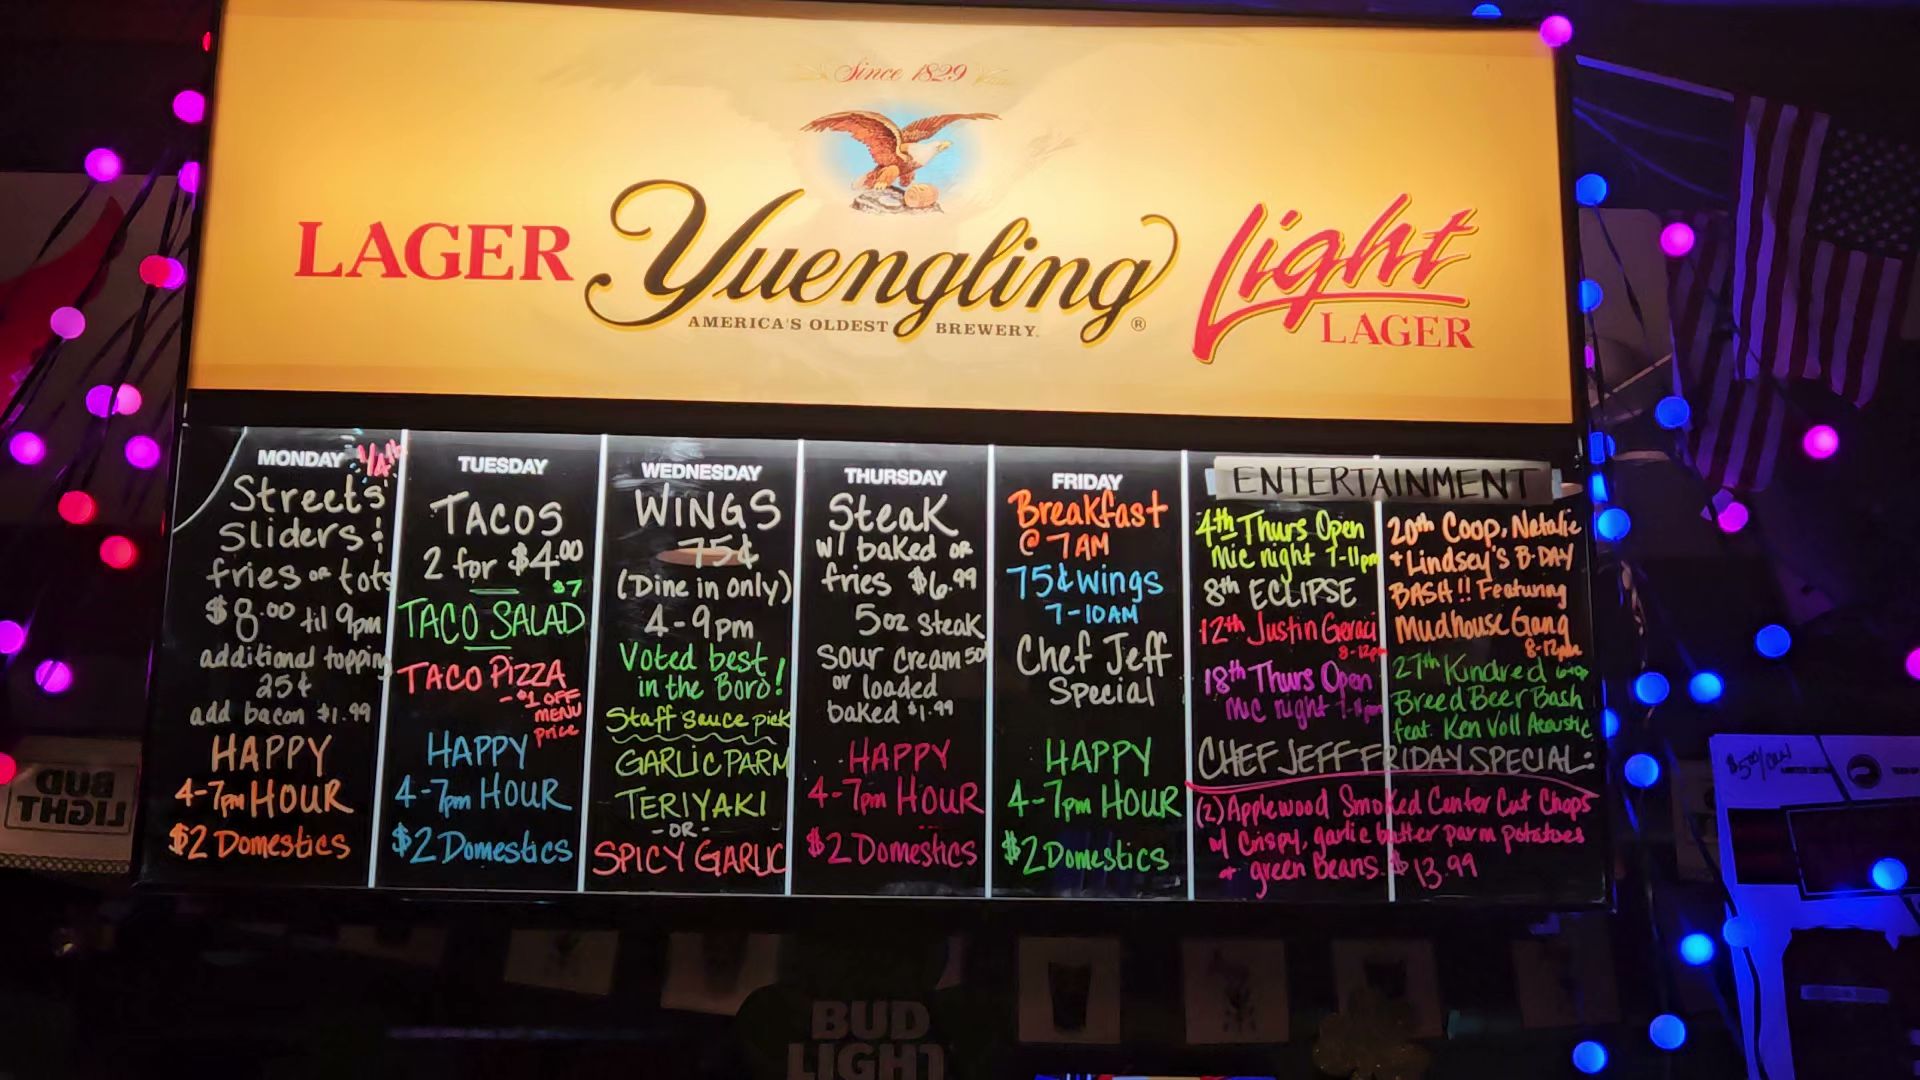 Since 1829
LAGER Yuengling Light
AMERICA'S OLDEST BREWERY. ®
LAGER
MONDAY
Streets'
Sliders &
fries or tots
$8.00 til 9pm
additional topping
25¢
add bacon $1.99
HAPPY
4-7pm HOUR
$2 Domestics
TUESDAY
TACOS
2 for $4.00
$7
TACO SALAD
TACO PIZZA
-$1 OFF
MENU
price
HAPPY
4-7pm HOUR
$2 Domestics
WEDNESDAY
WINGS
75¢
(Dine in only)
4-9pm
Voted best
in the Boro!
Staff sauce pick
GARLIC PARM
TERIYAKI
-OR-
SPICY GARLIC
THURSDAY
Steak
w/ baked or
fries $6.99
5oz steak
sour cream 50
or loaded
baked $1.99
HAPPY
4-7pm HOUR
$2 Domestics
FRIDAY
Breakfast
@ 7AM
75¢ wings
7-10AM
Chef Jeff
Special
HAPPY
4-7pm HOUR
$2 Domestics
ENTERTAINMENT
4th Thurs Open
Mic night 7-11pm
8th ECLIPSE
12th Justin Geraci
8-12pm
18th Thurs Open
Mic night 7-11pm
20th Coop, Natalie
+ Lindsey's B-DAY
BASH!! Featuring
Mudhouse Gang
27th Kindred
Breed Beer Bash
feat. Ken Voll Acoustic
CHEF JEFF FRIDAY SPECIAL:
(2) Applewood Smoked Center Cut Chops
w/ Crispy, garlic butter parm potatoes
+ green beans. $13.99
BUD
LIGHT
BUD
LIGHT